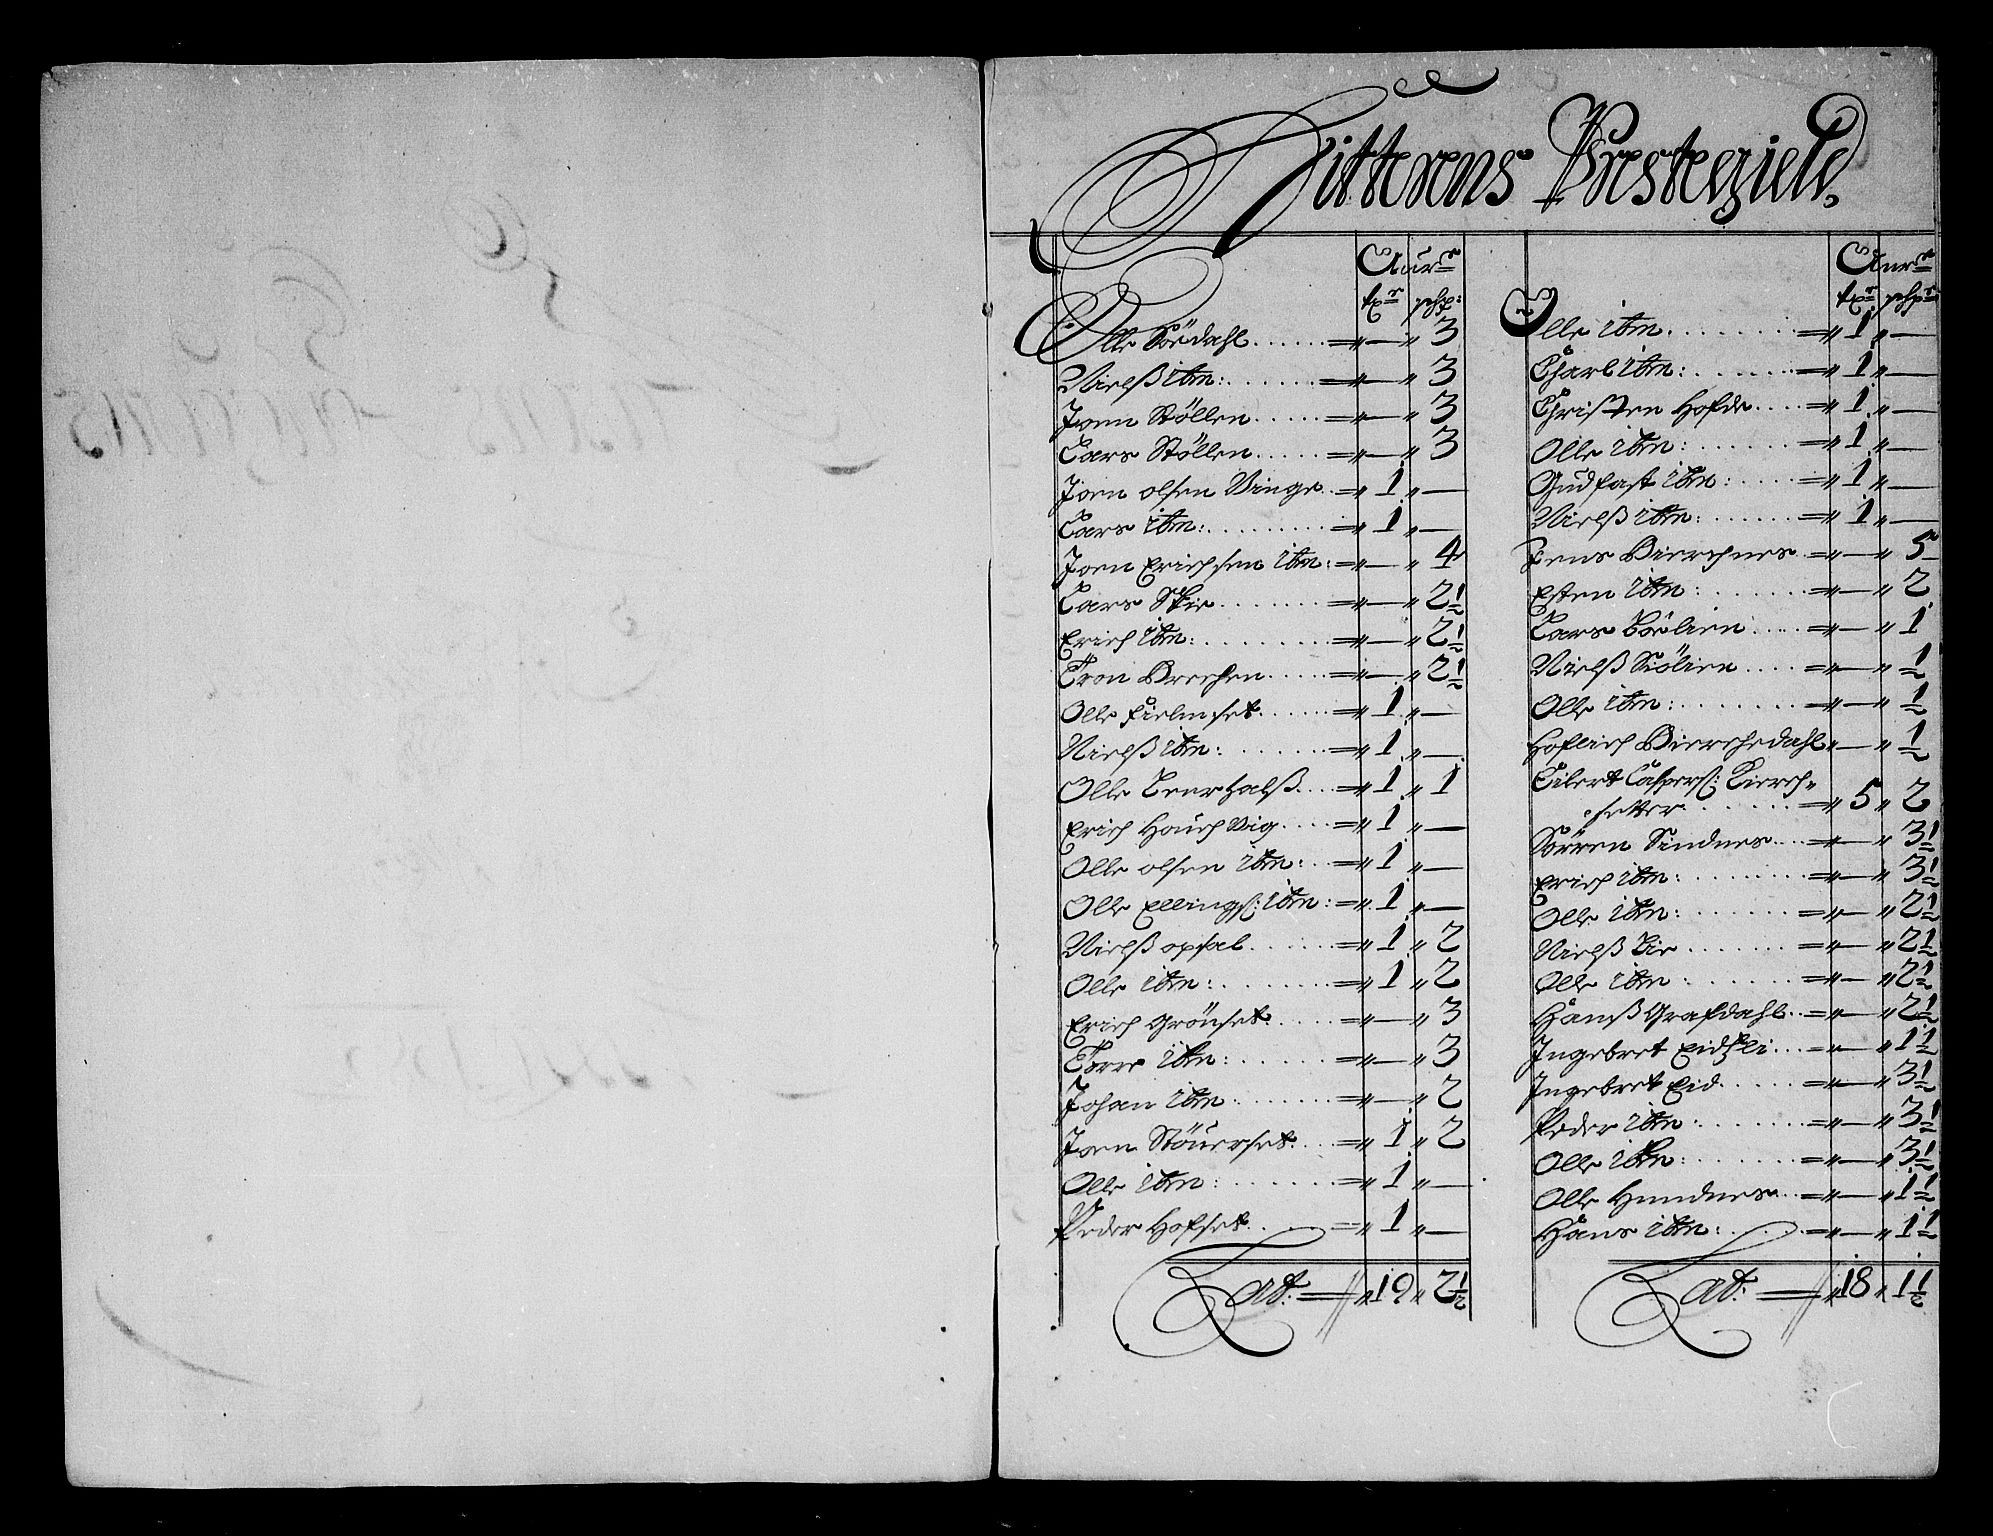 Hitterens Prestegield
Aurr
txr schp:
Olle Sördahl ...... =„—„ 3
Nielß ibm: ...... =„—„ 3
Joen Stöllen ..... =„—„ 3
Lars Stöllen ..... =„—„ 3
Joen olsen Vinge .. =„ 1 „—
Lars ibm: ......... =„ 1 „—
Joen Erichsen ibm: =„—„ 4
Lars Skie ....... =„—„ 2½
Erich ibm: ........ =„—„ 2½
Tron Brechen ..... =„—„ 2½
Olle Fielmset ...... =„ 1 „—
Nielß ibm: ...... =„ 1 „—
Olle Leurhalß ... =„ 1 „ 1
Erich Hauch Vig .... =„ 1 „—
Olle olsen ibm: .. =„ 1 „—
Olle Ellingß: ibm: =„ 1 „—
Nielß opfal ..... =„ 1 „ 2
Olle ibm: ....... =„ 1 „ 2
Erich Grönset ..... =„—„ 3
Torre ibm: ....... =„—„ 3
Johan ibm ....... =„—„ 2
Joen Stöuerset ... =„ 1 „ 2
Olle ibm: ....... =„ 1 „—
Peder Hofset .... =„ 1 „—
Lat: = „ 19 „ 2½
Aurr
txr schpr
Olle ibm ........ =„ 1 „—
Charl ibm: ...... =„ 1 „—
Christen Hofde .... =„ 1 „—
Olle ibm: ....... =„ 1 „—
Gudfast ibm: ..... =„ 1 „—
Nielß ibm: ....... =„ 1 „—
Jens Bierchnes .. =„—„ 5
Esten ibm: ....... =„—„ 2
Lars Börlien ..... =„—„ 1
Nielß Siölien .... =„—„ ½
Olle ibm: ........ =„—„ ½
Hoflich Bierchedahl „—„ ½
Eilert Casperß: Kierch-
setter ....... =„ 5 „ 2
Sörren Sindnes ... =„—„ 3½
Erich ibm: ....... =„—„ 3½
Olle ibm: ....... =„—„ 2½
Nielß Lie ....... =„—„ 2½
Olle ibm ....... =„—„ 2½
Hanß Grafdahl .. =„—„ 2½
Ingebret Eidsli ... =„—„ 1½
Ingebret Eid ..... =„—„ 3½
Peder ibm: ....... =„—„ 3½
Olle ibm: ....... =„—„ 3½
Olle Hundnes ... =„—„ 1½
Hans ibm: ....... =„—„ 1½
Lat: = „ 18 „ 1½